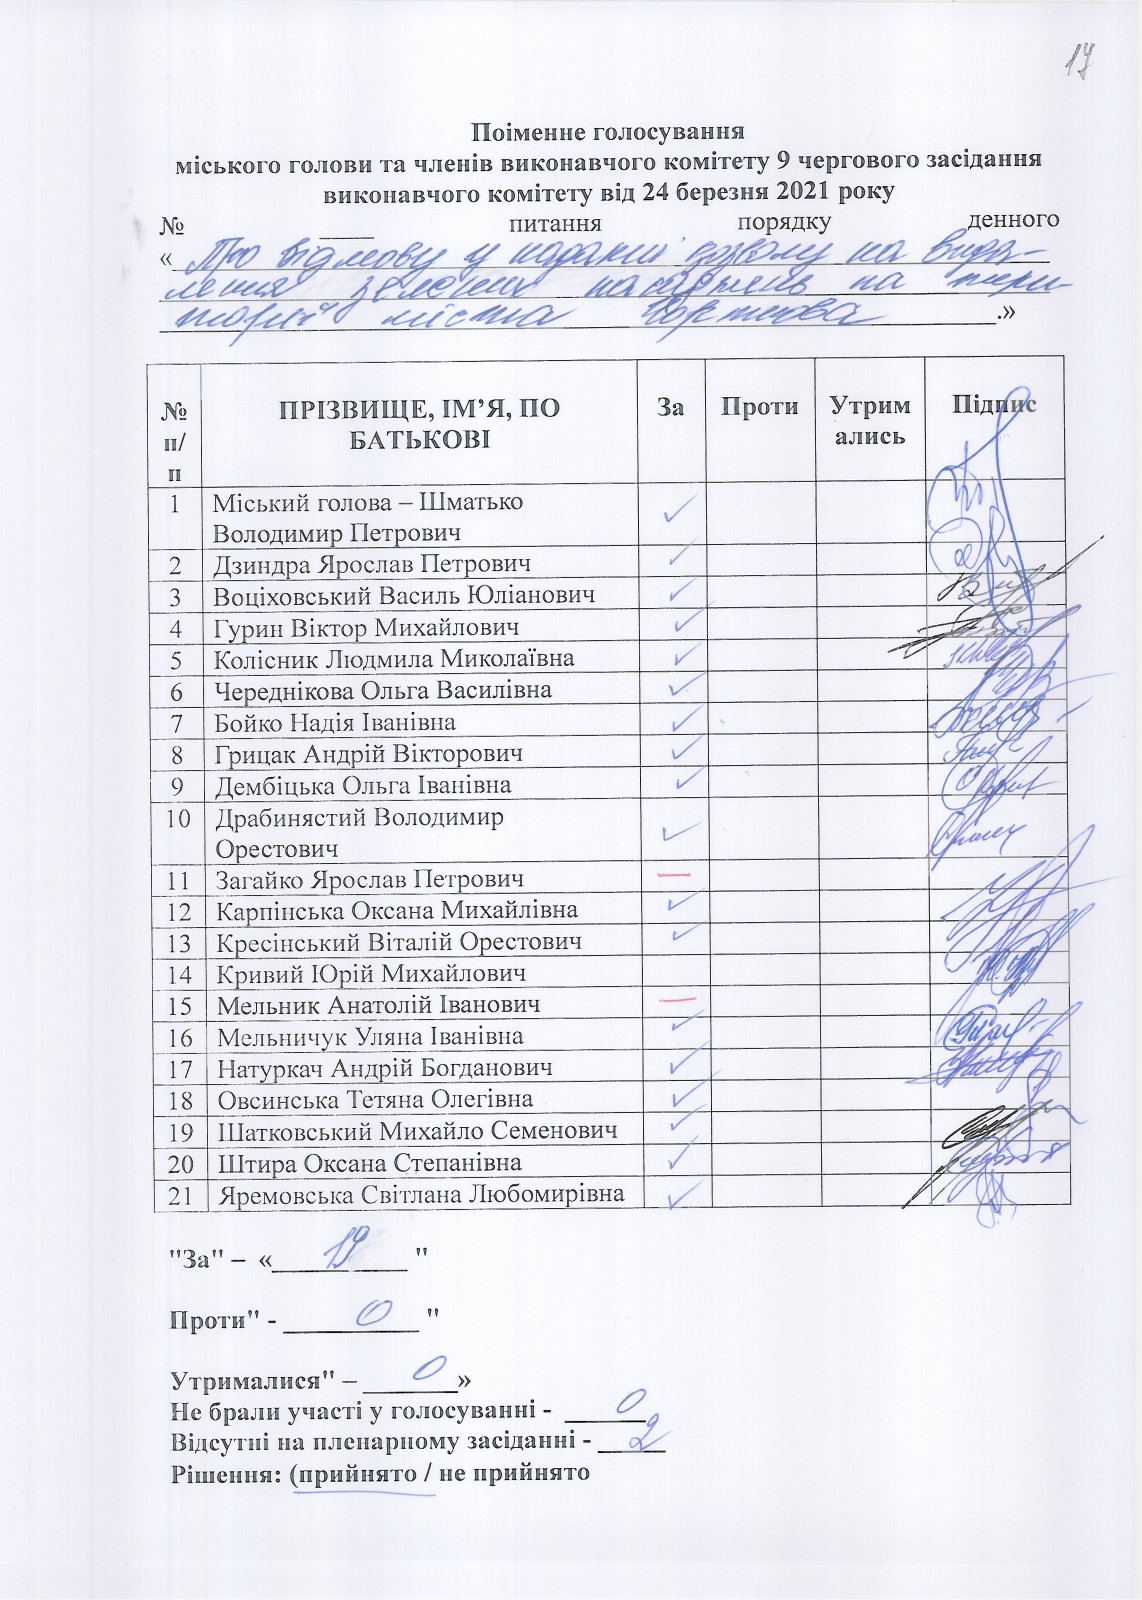 17
Поіменне голосування
міського голови та членів виконавчого комітету 9 чергового засідання
виконавчого комітету від 24 березня 2021 року
№ ____ питання порядку денного
« Про відмову у наданні дозволу на вида-
лення зелених насаджень на тери-
торії міста Чорткова .»
№ п/п ПРІЗВИЩЕ, ІМ’Я, ПО БАТЬКОВІ За Проти Утримались Підпис
1 Міський голова – Шматько
Володимир Петрович
2 Дзиндра Ярослав Петрович
3 Воціховський Василь Юліанович
4 Гурин Віктор Михайлович
5 Колісник Людмила Миколаївна
6 Череднікова Ольга Василівна
7 Бойко Надія Іванівна
8 Грицак Андрій Вікторович
9 Дембіцька Ольга Іванівна
10 Драбинястий Володимир
Орестович
11 Загайко Ярослав Петрович —
12 Карпінська Оксана Михайлівна
13 Кресінський Віталій Орестович
14 Кривий Юрій Михайлович
15 Мельник Анатолій Іванович —
16 Мельничук Уляна Іванівна
17 Натуркач Андрій Богданович
18 Овсинська Тетяна Олегівна
19 Шатковський Михайло Семенович
20 Штира Оксана Степанівна
21 Яремовська Світлана Любомирівна
"За" – « 19 "
Проти" - 0 "
Утрималися" – 0 »
Не брали участі у голосуванні - 0
Відсутні на пленарному засіданні - 2
Рішення: (прийнято / не прийнято